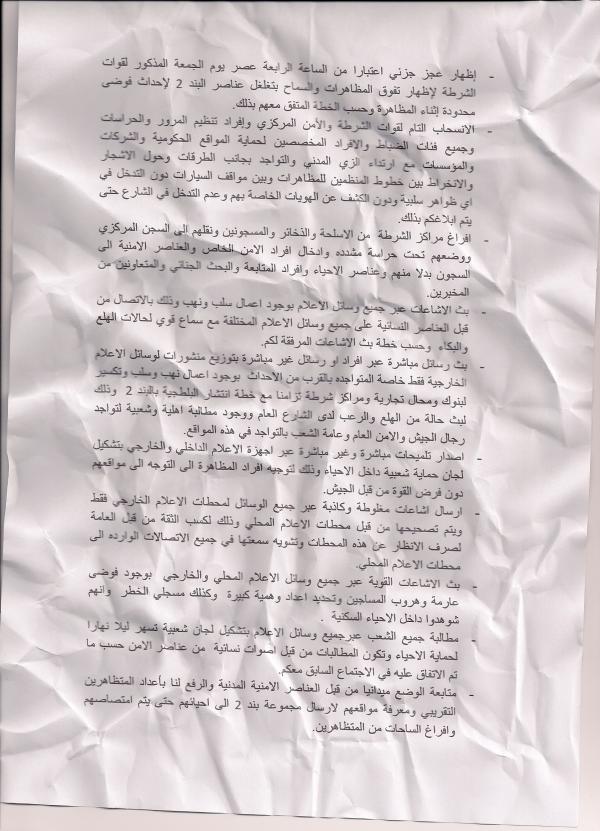 - إظهار عجز جزني اعتبارا من الساعة الرابعة عصر يوم الجمعة المذكور لقوات
الشرطة لإظهار تفوق المظاهرات والسماح بتغلغل عناصر البند 2 لإحداث فوضى
محدودة إثناء المظاهرة وحسب الخطة المتفق معهم بذلك.
- الانسحاب التام لقوات الشرطة والأمن المركزي وإفراد تنظيم المرور والحراسات
وجميع فئات الضباط والإفراد المخصصين لحماية المواقع الحكومية والشركات
والمؤسسات مع ارتداء الزي المدني والتواجد بجانب الطرقات وحول الاشجار
والانخراط بين خطوط المنظمين للمظاهرات وبين مواقف السيارات دون التدخل في
اي ظواهر سلبية ودون الكشف عن الهويات الخاصة بهم وعدم التدخل في الشارع حتى
يتم ابلاغكم بذلك.
- افراغ مراكز الشرطة من الاسلحة والذخائر والمسجونين ونقلهم الى السجن المركزي
ووضعهم تحت حراسة مشدده وادخال افراد الامن الخاص والعناصر الامنية الى
السجون بدلا منهم وعناصر الاحياء وافراد المتابعة والبحث الجنائي والمتعاونين من
المخبرين.
- بث الاشاعات عبر جميع وسائل الاعلام بوجود اعمال سلب ونهب وذلك بالاتصال من
قبل العناصر النسائية على جميع وسائل الاعلام المختلفة مع سماع قوي لحالات الهلع
والبكاء وحسب خطة بث الاشاعات المرفقة لكم.
- بث رسائل مباشرة عبر افراد او رسائل غير مباشرة بتوزيع منشورات لوسائل الاعلام
الخارجية فقط خاصة المتواجده بالقرب من الاحداث بوجود اعمال نهب وسلب وتكسير
لبنوك ومحال تجارية ومراكز شرطة تزامنا مع خطة انتشار البلطجية بالبند 2 وذلك
لبث حالة من الهلع والرعب لدى الشارع العام ووجود مطالبة اهلية وشعبية لتواجد
رجال الجيش والامن العام وعامة الشعب بالتواجد في هذه المواقع.
- اصدار تلميحات مباشرة وغير مباشرة عبر اجهزة الاعلام الداخلي والخارجي بتشكيل
لجان حماية شعبية داخل الاحياء وذلك لتوجيه افراد المظاهرة الى التوجه الى مواقعهم
دون فرض القوة من قبل الجيش.
- ارسال اشاعات مغلوطة وكاذبة عبر جميع الوسائل لمحطات الاعلام الخارجي فقط
ويتم تصحيحها من قبل محطات الاعلام المحلي وذلك لكسب الثقة من قبل العامة
لصرف الانتظار عن هذه المحطات وتشويه سمعتها في جميع الاتصالات الوارده الى
محطات الاعلام المحلي.
- بث الاشاعات القوية عبر جميع وسائل الاعلام المحلي والخارجي بوجود فوضى
عارمة وهروب المساجين وتحديد اعداد وهمية كبيرة وكذلك مسجلي الخطر وانهم
شوهدوا داخل الاحياء السكنية .
- مطالبة جميع الشعب عبرجميع وسائل الاعلام بتشكيل لجان شعبية تسهر ليلا نهارا
لحماية الاحياء وتكون المطالبات من قبل اصوات نسائية من عناصر الامن حسب ما
تم الاتفاق عليه في الاجتماع السابق معكم.
- متابعة الوضع ميدانيا من قبل العناصر الامنية المدنية والرفع لنا بأعداد المتظاهرين
التقريبي ومعرفة مواقعهم لارسال مجموعة بند 2 الى احيائهم حتى يتم امتصاصهم
وافراغ الساحات من المتظاهرين.